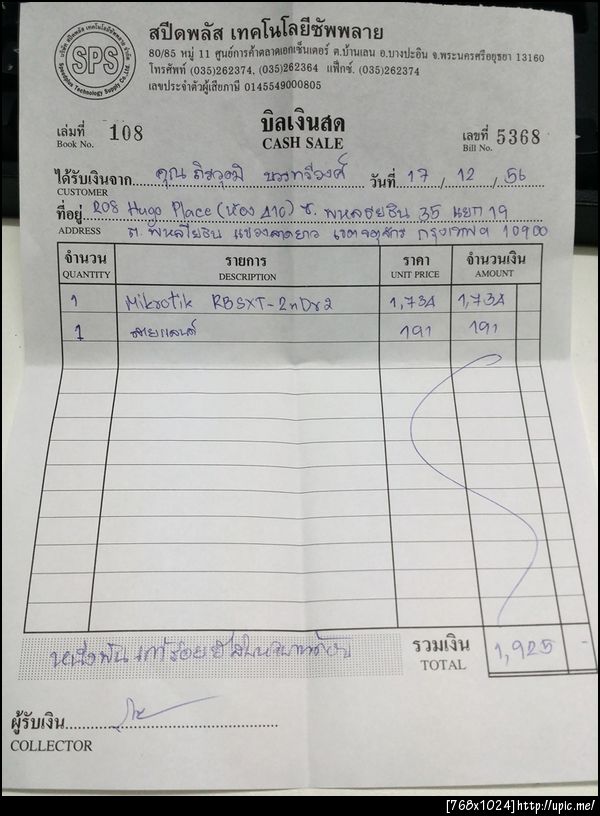 สปีดพลัส เทคโนโลยีซัพพลาย
80/85 หมู่ 11 ศูนย์การค้าตลาดเอกเซ็นเตอร์ ต.บ้านเลน อ.บางปะอิน จ.พระนครศรีอยุธยา 13160
โทรศัพท์ (035)262374, (035)262364 แฟ็กซ์. (035)262374
เลขประจำตัวผู้เสียภาษี 0145549000805
บริษัท สปีดพลัส เทคโนโลยีซัพพลาย จำกัด
SPS
Speedplus Technology Supply Co.,Ltd.
เล่มที่ 108
Book No.
บิลเงินสด
CASH SALE
เลขที่ 5368
Bill No.
ได้รับเงินจาก คุณ วันที่ 17 / 12 / 56
CUSTOMER
ที่อยู่ 208 Hugo Place (ห้อง 410) ซ. พหลโยธิน 35 แยก 19
ADDRESS ถ. พหลโยธิน แขวงลาดยาว เขตจตุจักร กรุงเทพฯ 10900
จำนวน รายการ ราคา จำนวนเงิน
QUANTITY DESCRIPTION UNIT PRICE AMOUNT
1 Mikrotik RBSXT-2nDr2 1,734 1,734
1 สายแลนด์ 191 191
หนึ่งพันเก้าร้อยยี่สิบห้าบาทถ้วน รวมเงิน 1,925 -
TOTAL
ผู้รับเงิน
COLLECTOR
[768x1024] http://upic.me/